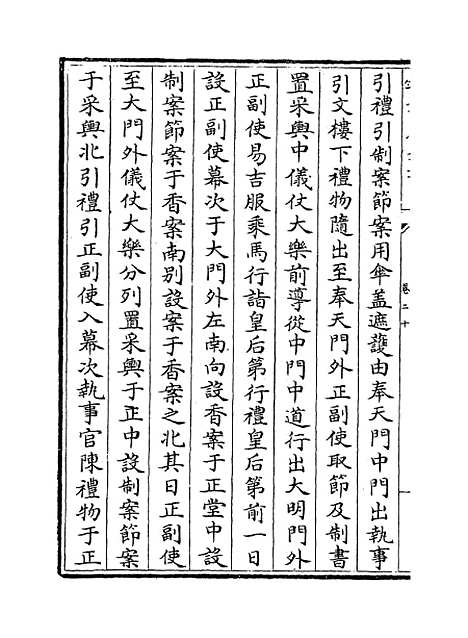 卷二十
引禮引制案節案用傘葢遮護由奉天門中門出執事
引文樓下禮物隨出至奉天門外正副使取節及制書
置采輿中儀仗大樂前導從中門中道行出大明門外
正副使易吉服乘馬行詣皇后第行禮皇后第前一日
設正副使幕次于大門外左南向設香案于正堂中設
制案節案于香案南别設案于香案之北其日正副使
至大門外儀仗大樂分列置采輿于正中設制案節案
于采輿北引禮引正副使入幕次執事官陳禮物于正